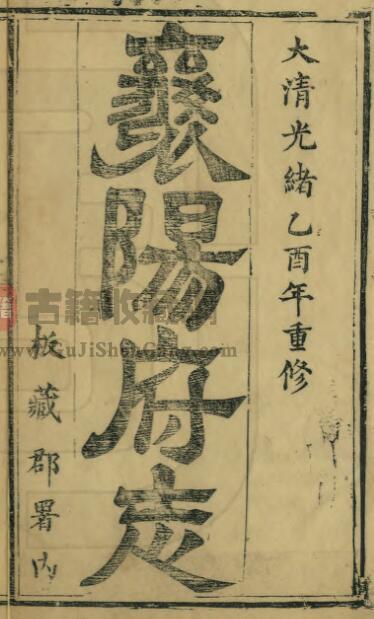 大清光緒乙酉年重修
襄陽府志
板藏郡署內
古籍收藏网
www.GuJiShouCang.com